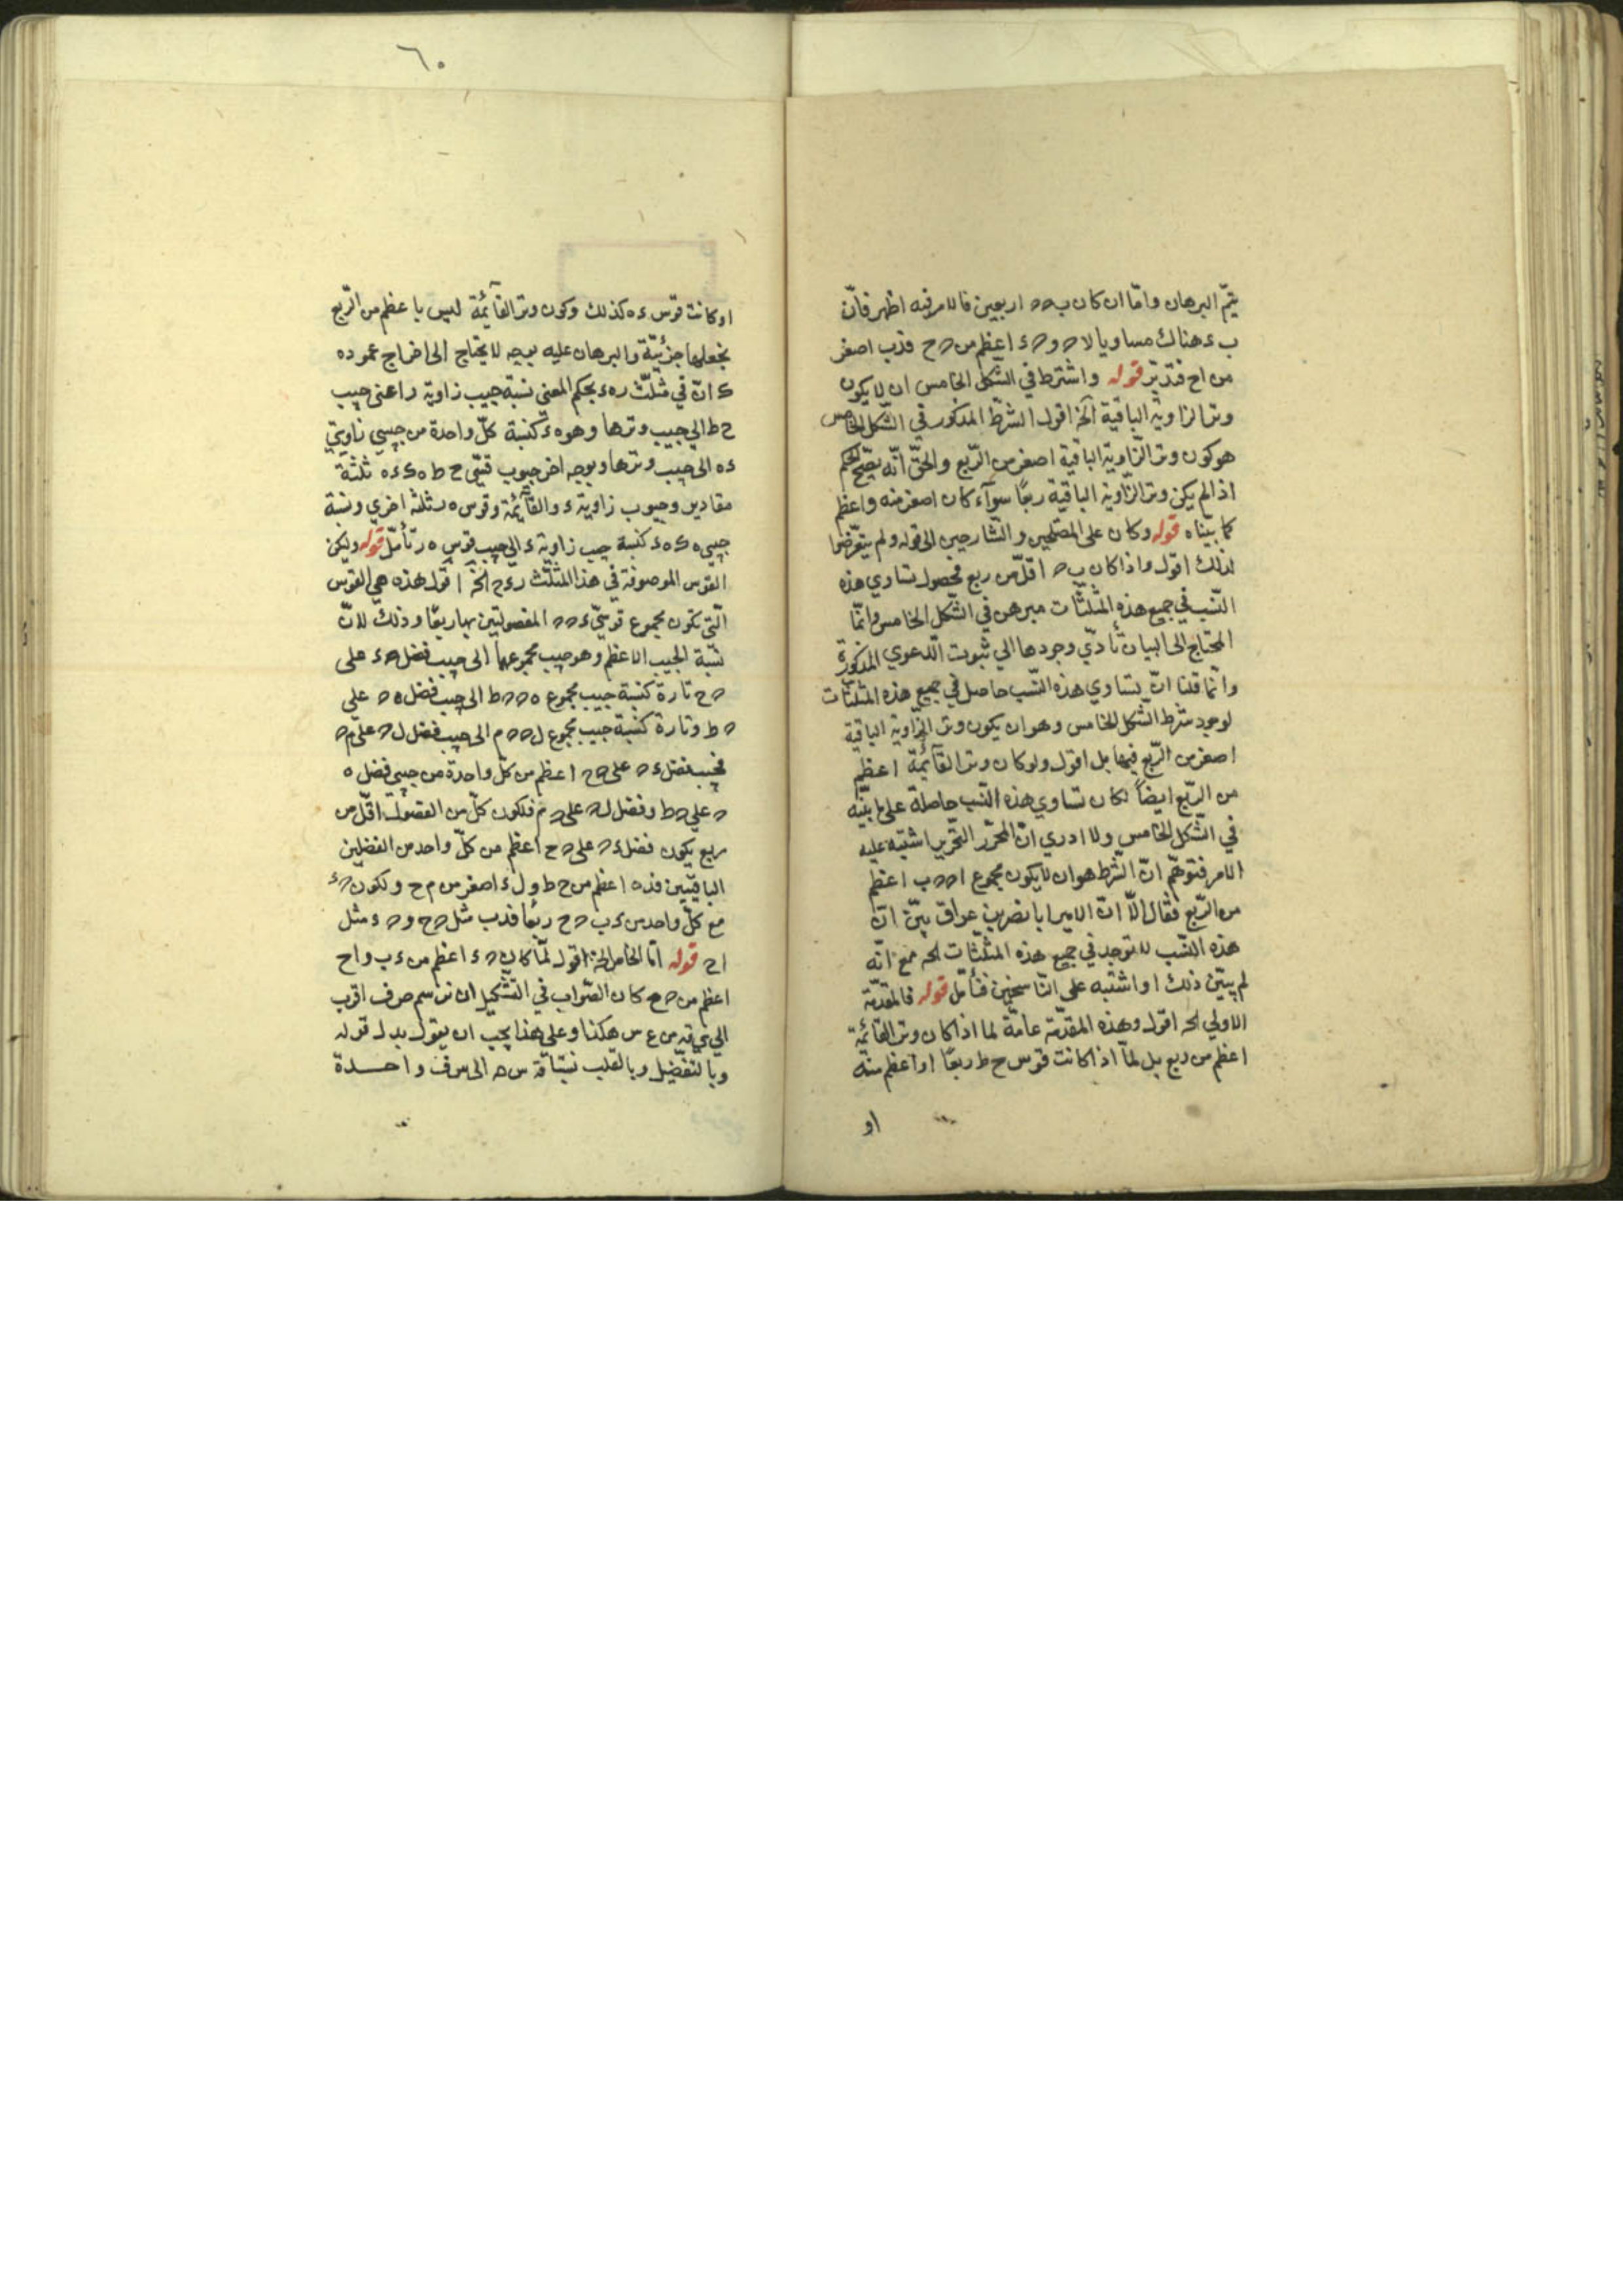 يتمّ البرهان وامّا ان كان ب ه ه اربعين فالامر فيه اظهر فانّ
ب ء هناك مساويا لا ه و ه ء اعظم من ه ح فذب اصغر
من اح فتدبّر قوله واشترط في الشكل الخامس ان لا يكون
وتر الزاوية الباقية آلخ اقول الشرط المذكور في الشّكل الخامس
هو كون وتر الزّاوية الباقية اصغر من الرّبع والحقّ انّه يصحّ الحكم
اذا لم يكن وتر الزّاوية الباقية ربعًا سوآء كان اصغر منه واعظم
كما بيّناه قوله وكان على المصلحين والشارحين الى قوله ولم يتعرّضوا
لذلك اقول واذا كان ب ه اقلّ من ربع فحصول تساوي هذه
النّسب في جميع هذه المثلّثات مبرهن في الشّكل الخامس وانّما
المحتاج الى البيان تأدّي وجودها الي ثبوت الدّعوي المذكورة
وانّما قلنا انّ تساوي هذه النّسب حاصل في جميع هذه المثلثات
لوجود شرط الشّكل الخامس وهو ان يكون وتر الزّاوية الباقية
اصغر من الرّبع فيها بل اقول ولو كان وتر القآئمة اعظم
من الرّبع ايضاً لكان تساوي هذه النّسب حاصلة على ما بيّنه
في الشّكل الخامس ولا ادري انّ المحرّر التّحرير اشتبه عليه
الامر فتوهّم انّ الشّرط هو ان لا يكون مجموع ا ه ه ب اعظم
من الرّبع فقال الّا انّ الامير ابا نصر بن عراق بيّن انّ
هذه النسّب لا توجد في جميع هذه المثلّثات الخ مع انّه
لم يبيّن ذلك او اشتبه على النّاسخين فتأمّل قوله فالمقدّمة
الاولي الخ اقول وهذه المقدّمة عامّة لما اذا كان وتر القائمة
اعظم من ربع بل لمّا اذا كانت قوس ح ط ربعًا او اعظم منه
او
٦٠
او كانت قوس ء ه كذلك وكون وتر القآئمة ليس باعظم من الرّبع
يجعلها جزئيّة والبرهان عليه بوجه لا يحتاج الى اخراج عمود ه
ك انّ في مثلّث ر ه ء بحكم المغني نسبة جيب زاوية ر اعني جيب
ح ط الي جيب وترها وهو ه ء كنسبة كلّ واحدة من جيبي زاويتي
ء ه الى جيب وترها وبوجه اخر جيوب قسيّ ح ط ه ك ء ه ثلثة
مقادير وجيوب زاوية ء والقآئمة وقوس ه ر ثلثة اخري ونسبة
جيبي ه ك ه ء كنسبة جيب زاوية ء الي جيب قوس ه ر تأمّل قوله وليكن
القوس الموصوفة في هذا المثلّث ر ء ح الخ اقول هذه هي القوس
الّتي تكون مجموع قوسيّ ء ه ه المفصولتين بها ربعًا وذلك لانّ
نسبة الجيب الاعظم وهو جيب مجموعهما الى جيب فضل ه ء على
ه ح تارة كنسبة جيب مجموع ه ه ه ط الى جيب فضل ه ه علي
ه ط وتارة كنسبة جيب مجموع ل ه ه م الى جيب فضل ل ه على م ه
فجيب فضل ء ه على ه ح اعظم من كلّ واحدة من جيبي فضل ه
ه علي ه ط وفضل ل ه على ه م فلكون كلّ من الفضول اقلّ من
ربع يكون فضل ء ه على ه ح اعظم من كلّ واحد من الفضلين
الباقيين فذه اعظم من ح ط و ل ء اصغر من م ح ولكون ه ء
مع كلّ واحد من ء ب ه ح ربعًا فدب مثل ه ح و ه ء مثل
اح قوله امّا الخامس الخ اقول لمّا كان ه ء اعظم من ء ب و اح
اعظم من ه ح كان الصّواب في التشكيل ان نرسم ص ف اقرب
الي من ع س هكذا وعلى هذا يجب ان يقول بدل قوله
وبالتفضيل وبالقلب نسبتا ق س ه الى س ف واحدة